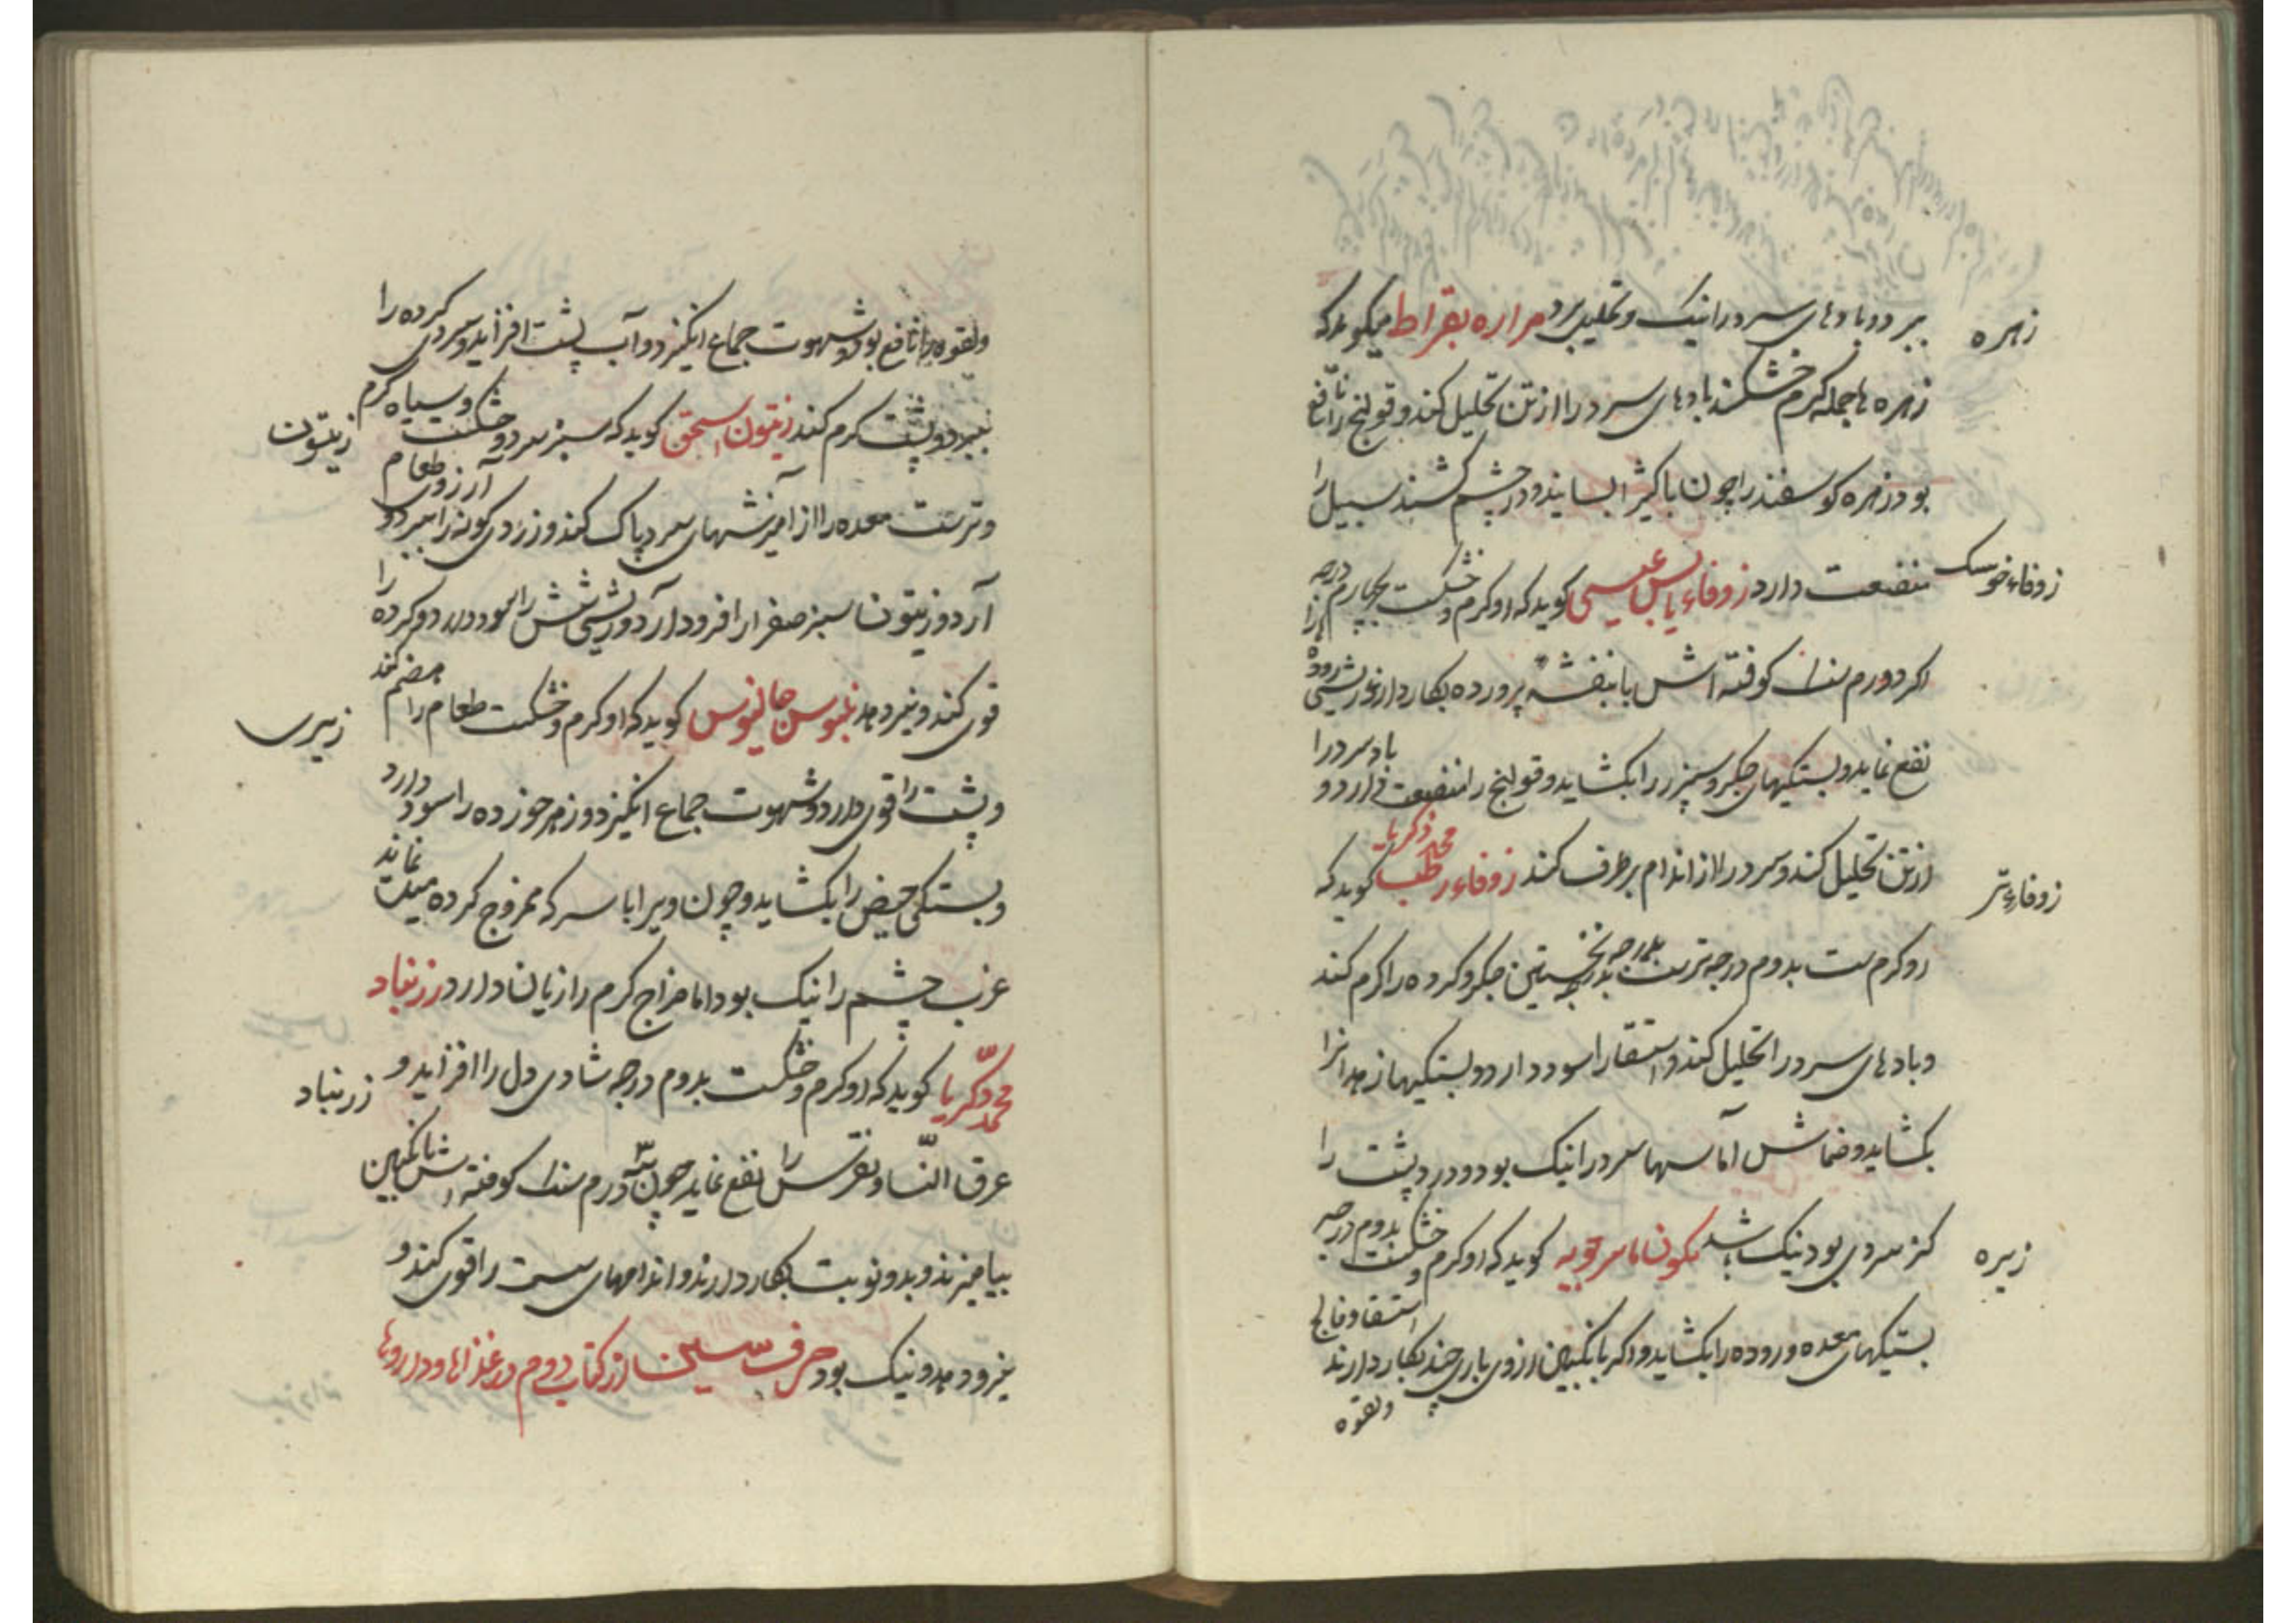 زهره
ببرد و بادهای سرد را نیک و تحلیل برد مراره بقراط میکوید که
زهره ها جمله کرم خشکند بادهای سرد را از تن تحلیل کند و قولنج را نافع
بود زهره کوسفند را چون با کثیرا بسایند و در چشم کشند سبیل را
زوفاء خوشک
منفعت دارد زوفاء یابس عیسی کوید که او کرم و خشکست بچهارم درجه
اکر دو درم سنک کوفته اش با بنفشه پرورده بکار دارند ریشی روده را
نفع نماید و بستکیهای جکر و سپرز را بکشاید و قولنج را منفعت دارد و باد سرد را
زوفاء تر
از تن تحلیل کند و سرد را از اندام برطرف کند زوفاء رطب محمد زکریا کوید که
او کرم ست بدوم درجه ترست بدرجه نخستین جکر و کرده را کرم کند
و بادهای سرد را تحلیل کند و استسقا را سود دارد و بستکیها زهدانرا
بکشاید و ضماش آماسها سرد را نیک بود و درد پشت را
زیره
کز سردی بود نیک باشد کمون ماسرجویه کوید که او کرم و خشکست بدوم درجه
بستکیهای معده و روده را بکشاید و اکر با انکبین ازوی باری چند بکار دارند استسقا و فالج
ولقوه
ولقوه را نافع بود و شهوت جماع انکیزد و آب پشت افزاید و سردی کرده را
زیتون
ببرد و پشت کرم کند زیتون اسحق کوید که سبز سرد و خشکست و سیاه کرم
و ترست معده را از آمیزشهای سرد پاک کند و زردی کونه را ببرد و آرزوی طعام
آرد و زیتون سبز صفرا را فرود آرد و ریشی شش را سود دارد و کرده را
زیبری
قوی کند و نیرو دهد جالینوس کوید که او کرم و خشکست طعام را هضم کند
و پشت را قوی دارد و شهوت جماع انکیزد و زهر خورده را سود دارد
و بستکی حیض را بکشاید و چون ویرا با سرکه ممزوج کرده نماید
غرب چشم را نیک بود اما مزاج کرم را زیان دارد زرنباد
زرنباد
محمد زکریا کوید که او کرم و خشکست بدوم درجه شادی دل را افزاید و
عرق النسا و نقرس را نفع نماید چون درم سنک کوفته اش بانکبین
بیامیزند و بدو نوبت بکار دارند و اندامهای سست را قوی کند و
نیرو دهد و نیک بود حرف سین از کتاب دوم در غذاها و داروها